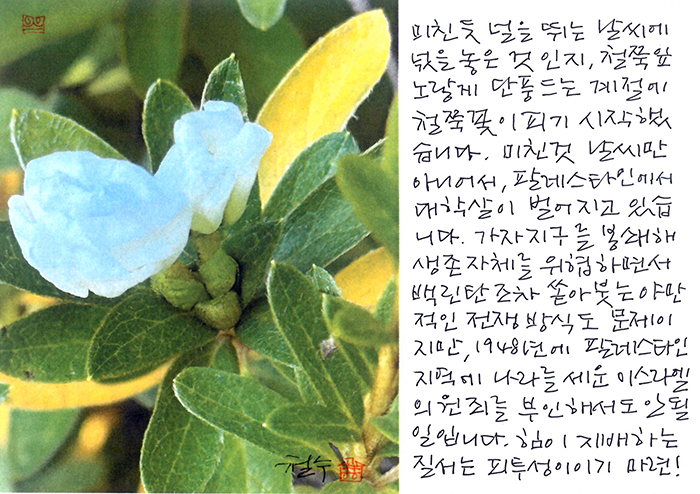 미친듯 널을 뛰는 날씨에
넋을 놓은 것인지, 철쭉잎
노랗게 단풍드는 계절에
철쭉꽃이 피기 시작했
습니다. 미친것 날씨만
아니어서, 팔레스타인에서
대학살이 벌어지고 있습
니다. 가자지구를 봉쇄해
생존자체를 위협하면서
백린탄조차 쏟아붓는 야만
적인 전쟁방식도 문제이
지만, 1948년에 팔레스타인
지역에 나라를 세운 이스라엘
의 원죄를 부인해서도 안될
일입니다. 힘이 지배하는
질서는 피투성이이기 마련!
철수